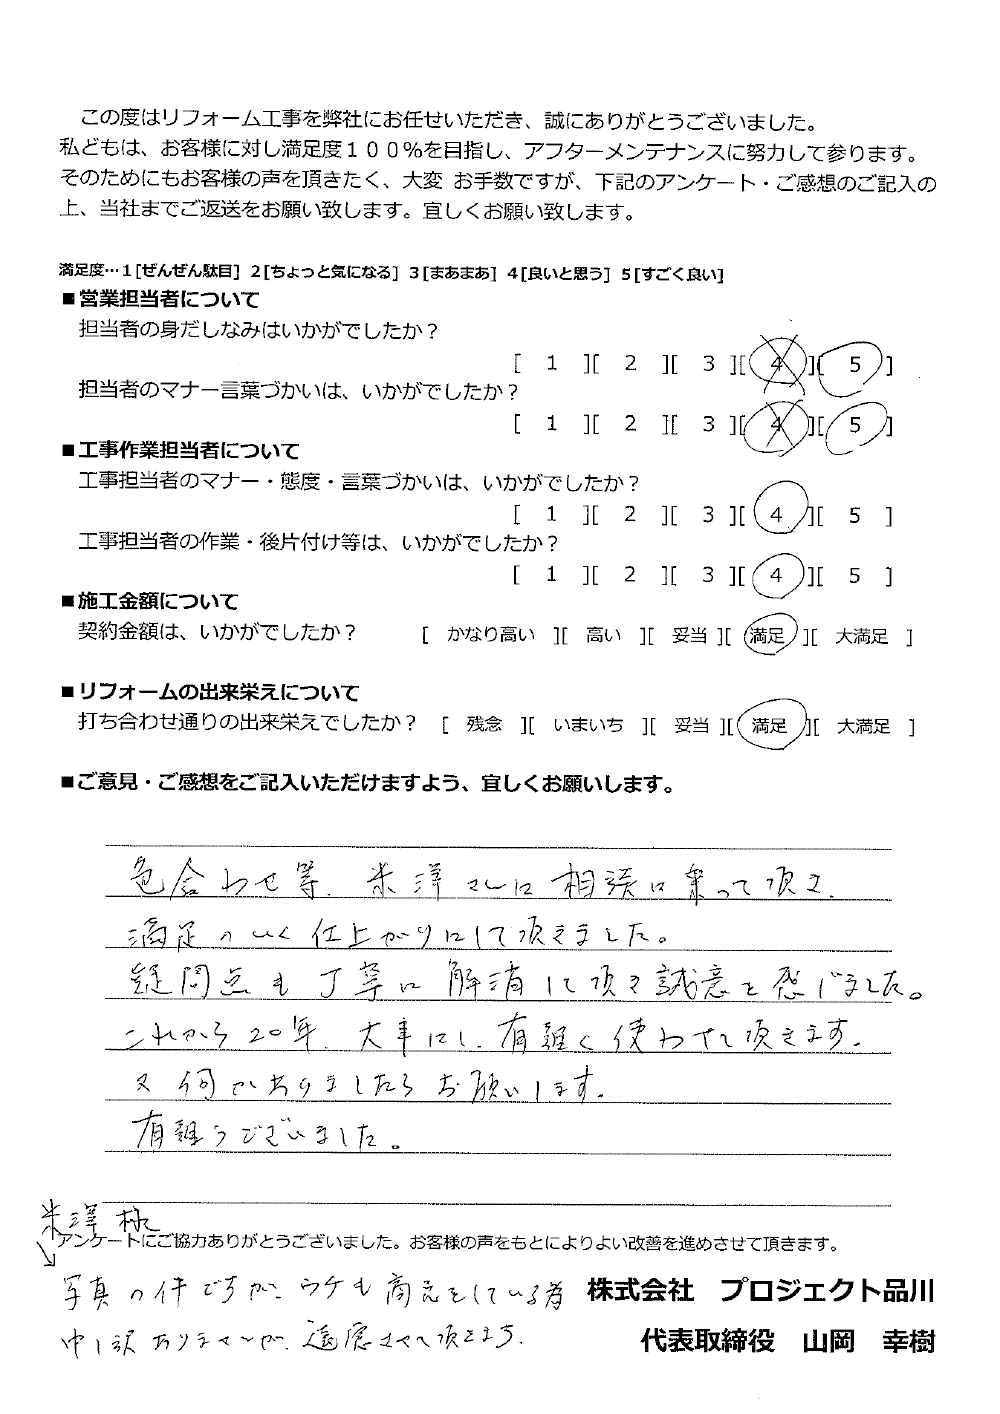 この度はリフォーム工事を弊社にお任せいただき、誠にありがとうございました。
私どもは、お客様に対し満足度１００％を目指し、アフターメンテナンスに努力して参ります。
そのためにもお客様の声を頂きたく、大変 お手数ですが、下記のアンケート・ご感想のご記入の
上、当社までご返送をお願い致します。宜しくお願い致します。
満足度…１[ぜんぜん駄目] ２[ちょっと気になる] ３[まあまあ] ４[良いと思う] ５[すごく良い]
■営業担当者について
担当者の身だしなみはいかがでしたか？
[ 1 ][ 2 ][ 3 ][ 4 ][ 5 ]
担当者のマナー言葉づかいは、いかがでしたか？
[ 1 ][ 2 ][ 3 ][ 4 ][ 5 ]
■工事作業担当者について
工事担当者のマナー・態度・言葉づかいは、いかがでしたか？
[ 1 ][ 2 ][ 3 ][ 4 ][ 5 ]
工事担当者の作業・後片付け等は、いかがでしたか？
[ 1 ][ 2 ][ 3 ][ 4 ][ 5 ]
■施工金額について
契約金額は、いかがでしたか？ [ かなり高い ][ 高い ][ 妥当 ][ 満足 ][ 大満足 ]
■リフォームの出来栄えについて
打ち合わせ通りの出来栄えでしたか？ [ 残念 ][ いまいち ][ 妥当 ][ 満足 ][ 大満足 ]
■ご意見・ご感想をご記入いただけますよう、宜しくお願いします。
色合わせ等、米澤さんに相談に乗って頂き、
満足のいく仕上がりにして頂きました。
疑問点も丁寧に解消して頂き誠意を感じました。
これから20年、大事にし、有難く使わせて頂きます。
又何かありましたらお願いします。
有難うございました。
米澤様
アンケートにご協力ありがとうございました。お客様の声をもとによりよい改善を進めさせて頂きます。
写真の件ですが、ウチも商売をしている為
申し訳ありませんが、遠慮させて頂きます。
株式会社 プロジェクト品川
代表取締役 山岡 幸樹